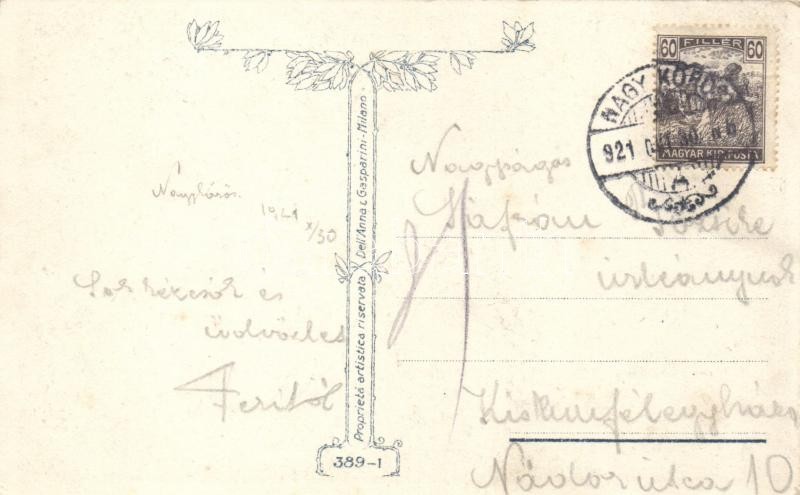 60 FILLÉR 60
MAGYAR KIR. POSTA
NAGY KŐRÖS
921
A
Nagykőrös
1921 X/30
Sok kézcsók és
üdvözlet
Feritől
Proprietà artistica riservata Dell'Anna & Gasparini - Milano
389-1
Nagyságos
Sáfrán Böske
úrleánynak
Kiskunfélegyháza
Nádor utca 10.